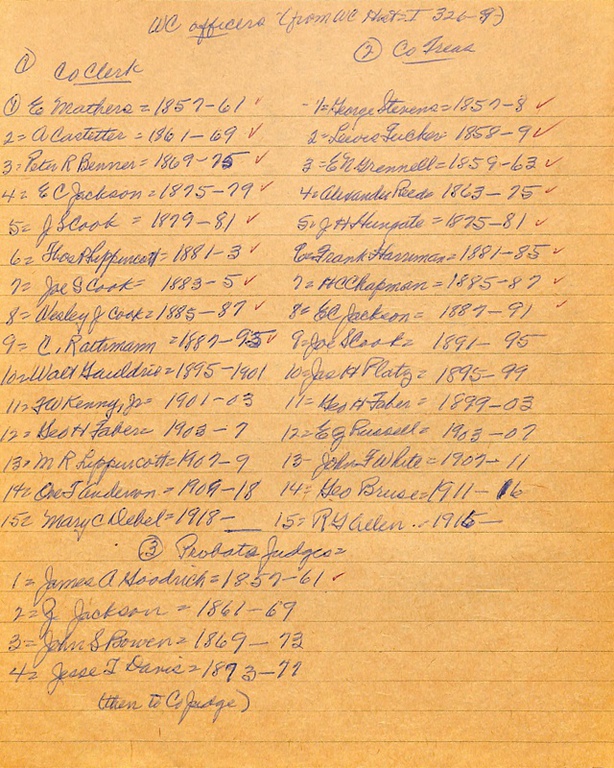 WC officers (from WC Hist-I 326-9)
① Co Clerk
① E Mathers = 1857-61 ✓
2 = A Castetter = 1861-69 ✓
3 = Peter R Benner = 1869-75 ✓
4 = E C Jackson = 1875-79 ✓
5 = J S Cook = 1879-81 ✓
6 = Thos R Lippincott = 1881-3 ✓
7 = Joe S Cook = 1883-5 ✓
8 = Wesley J Cook = 1885-87 ✓
9 = C. Rathmann = 1887-95 ✓
10 = Walt Gauldrie = 1895-1901
11 = F W Kenny, Jr = 1901-03
12 = Geo H Faber = 1903-7
13 = M R Lippincott = 1907-9
14 = One T Anderson = 1909-18
15 = Mary C Debel = 1918-
② Co Treas
1 = George Stevens = 1857-8 ✓
2 = Lewis Tucker = 1858-9 ✓
3 = E N Grennell = 1859-63 ✓
4 = Alexander Reed = 1863-75 ✓
5 = J H Hungate = 1875-81 ✓
6 = Frank Harriman = 1881-85 ✓
7 = H C Chapman = 1885-87 ✓
8 = E C Jackson = 1887-91 ✓
9 = Joe S Cook = 1891-95
10 = Jas H Platz = 1895-99
11 = Geo H Faber = 1899-03
12 = E G Russell = 1903-07
13 - John F White = 1907-11
14 = Geo Bruse = 1911-16
15 = R G Allen = 1916-
③ Probate Judges =
1 = James A Goodrich = 1857-61 ✓
2 = Z Jackson = 1861-69
3 = John S Bowen = 1869-73
4 = Jesse T Davis = 1873-77
(then to Co Judge)